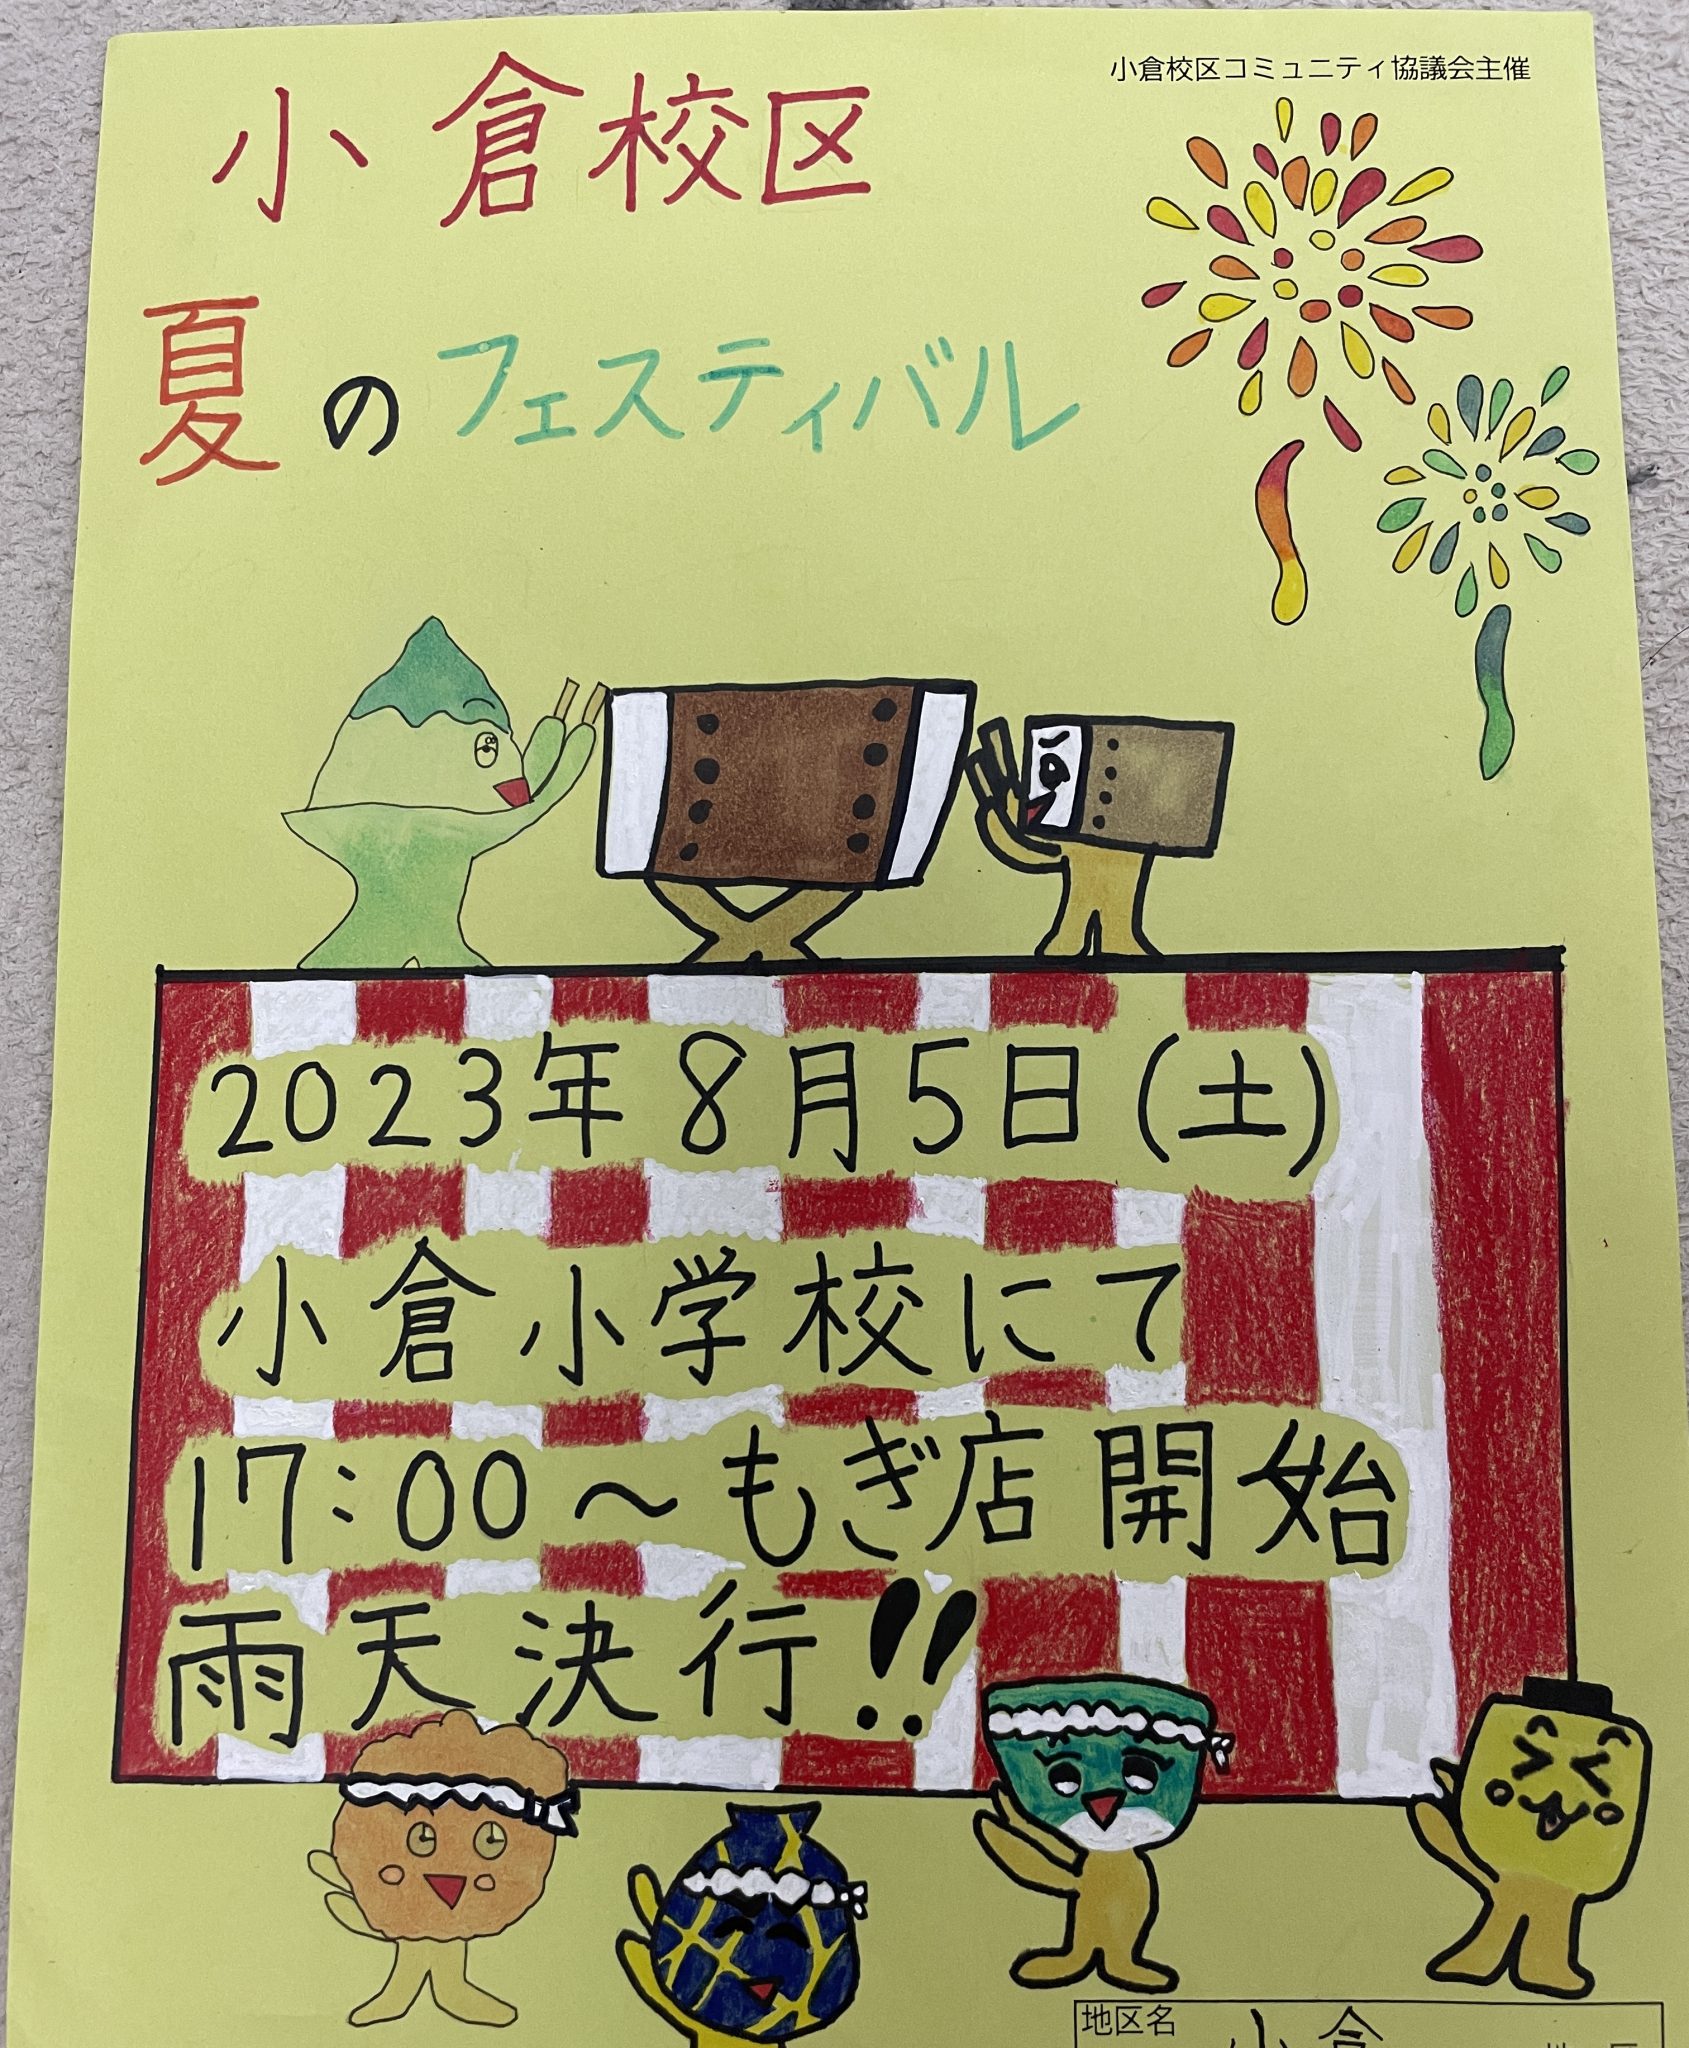 小倉校区コミュニティ協議会主催
小倉校区
夏のフェスティバル
2023年8月5日(土)
小倉小学校にて
17:00~もぎ店開始
雨天決行!!
地区名
小倉
地区